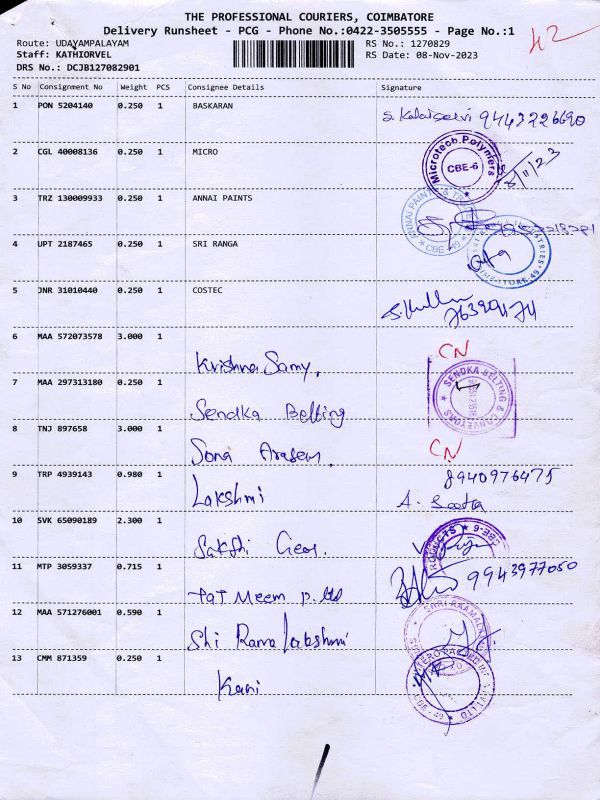 THE PROFESSIONAL COURIERS, COIMBATORE
Delivery Runsheet - PCG - Phone No.:0422-3505555 - Page No.:1
42
Route: UDAYAMPALAYAM
RS No.: 1270829
Staff: KATHIORVEL
RS Date: 08-Nov-2023
DRS No.: DCJB127082901
S No Consignment No Weight PCS Consignee Details Signature
1 PON 5204140 0.250 1 BASKARAN 9443226690
2 CGL 40008136 0.250 1 MICRO Microtech Polymers CBE-6 8/11/23
3 TRZ 130009933 0.250 1 ANNAI PAINTS ANNAI PAINTS CBE-49
4 UPT 2187465 0.250 1 SRI RANGA COIMBATORE-49
5 JNR 31010440 0.250 1 COSTEC
6 MAA 572073578 3.000 1 Krishna Samy. CN
7 MAA 297313180 0.250 1 Sendka Belting SENDKA BELTING & CONVEYORS
8 TNJ 897658 3.000 1 Sona CN
9 TRP 4939143 0.980 1 Lakshmi 8940976475
10 SVK 65090189 2.300 1 Sakthi Gear. PRODUCTS CBE-6
11 MTP 3059337 0.715 1 Meem P. Ltd 9943977050
12 MAA 571276001 0.590 1 Shi Rama Lakshmi
13 CMM 871359 0.250 1 Kani CBE-49